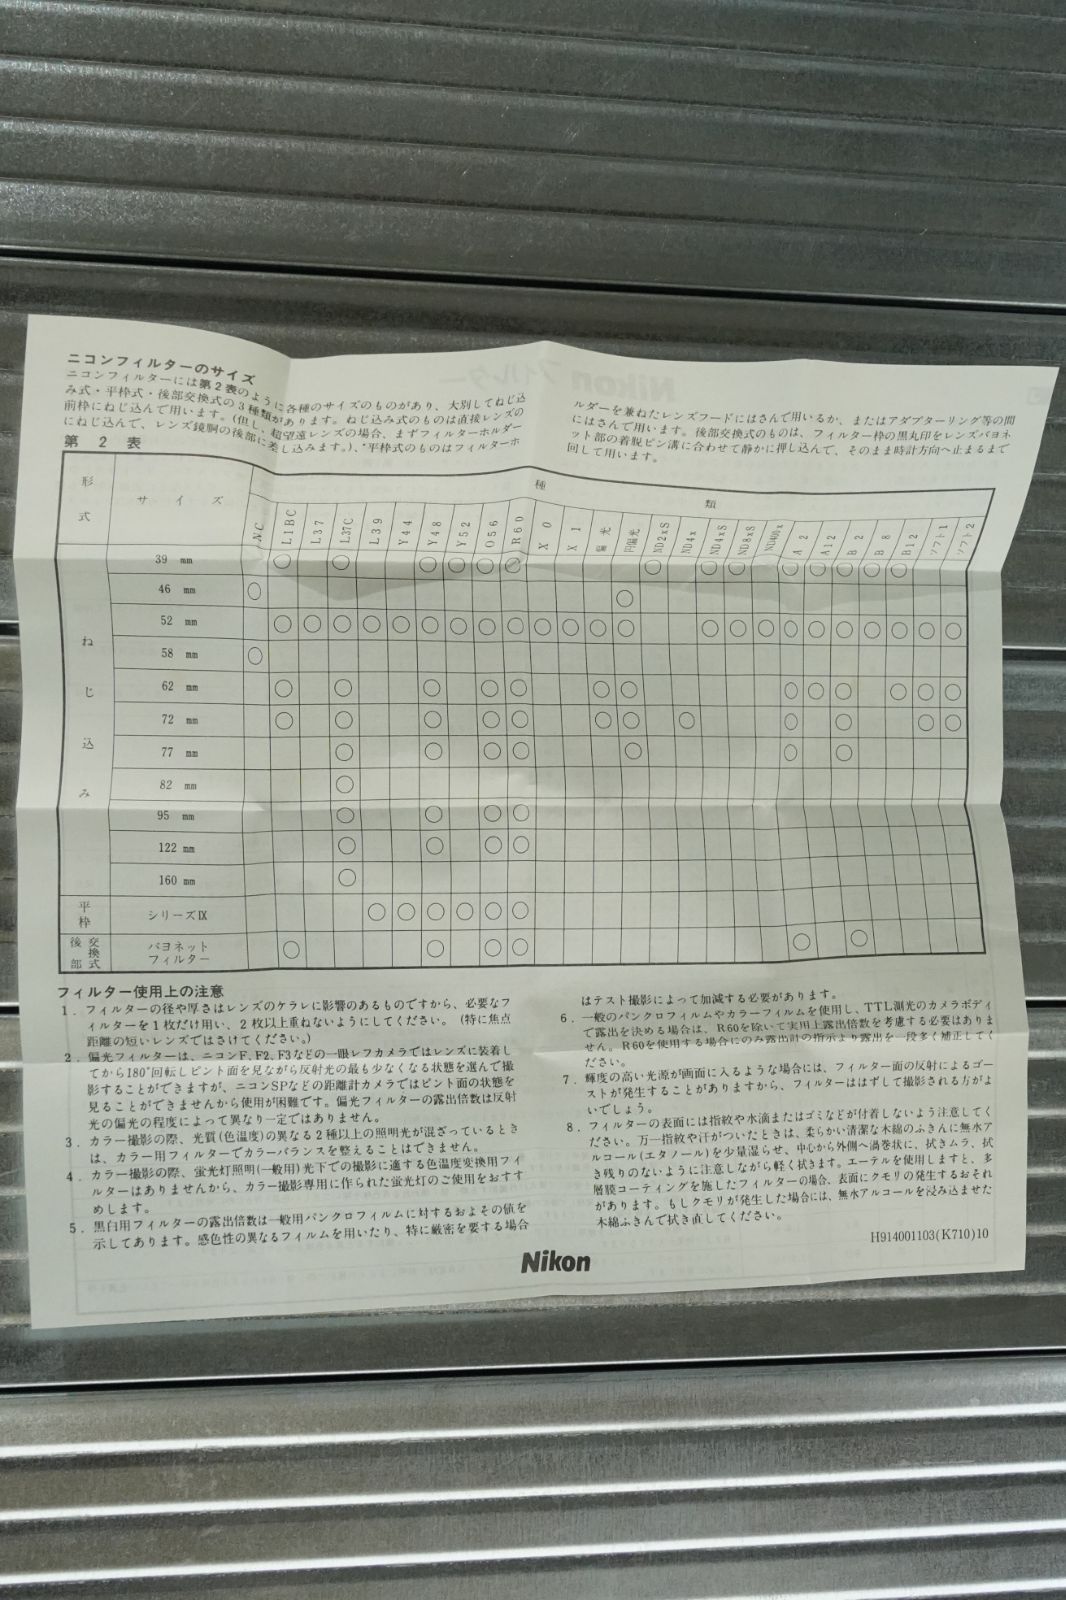 ニコンフィルターのサイズ
ニコンフィルターには第2表のように各種のサイズのものがあり、大別してねじ込
み式・平枠式・後部交換式の3種類があります。ねじ込み式のものは直接レンズの
前枠にねじ込んで用います。(但し、超望遠レンズの場合、まずフィルターホルダー
にねじ込んで、レンズ鏡胴の後部に差し込みます。)、平枠式のものはフィルターホ
ルダーを兼ねたレンズフードにはさんで用いるか、またはアダプターリング等の間
にはさんで用います。後部交換式のものは、フィルター枠の黒丸印をレンズバヨネ
ット部の着脱ピン溝に合わせて静かに押し込んで、そのまま時計方向へ止まるまで
回して用います。
第2表
形式 サイズ 種類
NC L1BC L37 L37C L39 Y44 Y48 Y52 O56 R60 X0 X1 偏光 円偏光 ND2xS ND4x ND4xS ND8xS ND400x A2 A12 B2 B8 B12 ソフト1 ソフト2
ねじ込み
39 mm ○ ○ ○ ○ ○ ○ ○ ○ ○ ○ ○ ○ ○ ○
46 mm ○ ○
52 mm ○ ○ ○ ○ ○ ○ ○ ○ ○ ○ ○ ○ ○ ○ ○ ○ ○ ○ ○ ○ ○ ○ ○
58 mm ○
62 mm ○ ○ ○ ○ ○ ○ ○ ○ ○ ○ ○ ○ ○
72 mm ○ ○ ○ ○ ○ ○ ○ ○ ○ ○ ○ ○
77 mm ○ ○ ○ ○ ○ ○ ○
82 mm ○
95 mm ○ ○ ○ ○
122 mm ○ ○ ○ ○
160 mm ○
平枠 シリーズⅨ ○ ○ ○ ○ ○ ○
後部交換式 バヨネットフィルター ○ ○ ○ ○ ○ ○
フィルター使用上の注意
1．フィルターの径や厚さはレンズのケラレに影響のあるものですから、必要なフ
ィルターを1枚だけ用い、2枚以上重ねないようにしてください。(特に焦点
距離の短いレンズではさけてください。)
2．偏光フィルターは、ニコンF、F2、F3などの一眼レフカメラではレンズに装着し
てから180°回転しピント面を見ながら反射光の最も少なくなる状態を選んで撮
影することができますが、ニコンSPなどの距離計カメラではピント面の状態を
見ることができませんから使用が困難です。偏光フィルターの露出倍数は反射
光の偏光の程度によって異なり一定ではありません。
3．カラー撮影の際、光質(色温度)の異なる2種以上の照明光が混ざっているとき
は、カラー用フィルターでカラーバランスを整えることはできません。
4．カラー撮影の際、蛍光灯照明(一般用)光下での撮影に適する色温度変換用フィ
ルターはありませんから、カラー撮影専用に作られた蛍光灯のご使用をおすす
めします。
5．黒白用フィルターの露出倍数は一般用パンクロフィルムに対するおよその値を
示してあります。感色性の異なるフィルムを用いたり、特に厳密を要する場合
はテスト撮影によって加減する必要があります。
6．一般のパンクロフィルムやカラーフィルムを使用し、TTL測光のカメラボディ
で露出を決める場合は、R60を除いて実用上露出倍数を考慮する必要はありま
せん。R60を使用する場合にのみ露出計の指示より露出を一段多く補正してく
ださい。
7．輝度の高い光源が画面に入るような場合には、フィルター面の反射によるゴー
ストが発生することがありますから、フィルターははずして撮影される方がよ
いでしょう。
8．フィルターの表面には指紋や水滴またはゴミなどが付着しないよう注意してく
ださい。万一指紋や汗がついたときは、柔らかい清潔な木綿のふきんに無水ア
ルコール(エタノール)を少量湿らせ、中心から外側へ渦巻状に、拭きムラ、拭
き残りのないように注意しながら軽く拭きます。エーテルを使用しますと、多
層膜コーティングを施したフィルターの場合、表面にクモリの発生するおそれ
があります。もしクモリが発生した場合には、無水アルコールを浸み込ませた
木綿ふきんで拭き直してください。
H914001103(K710)10
Nikon